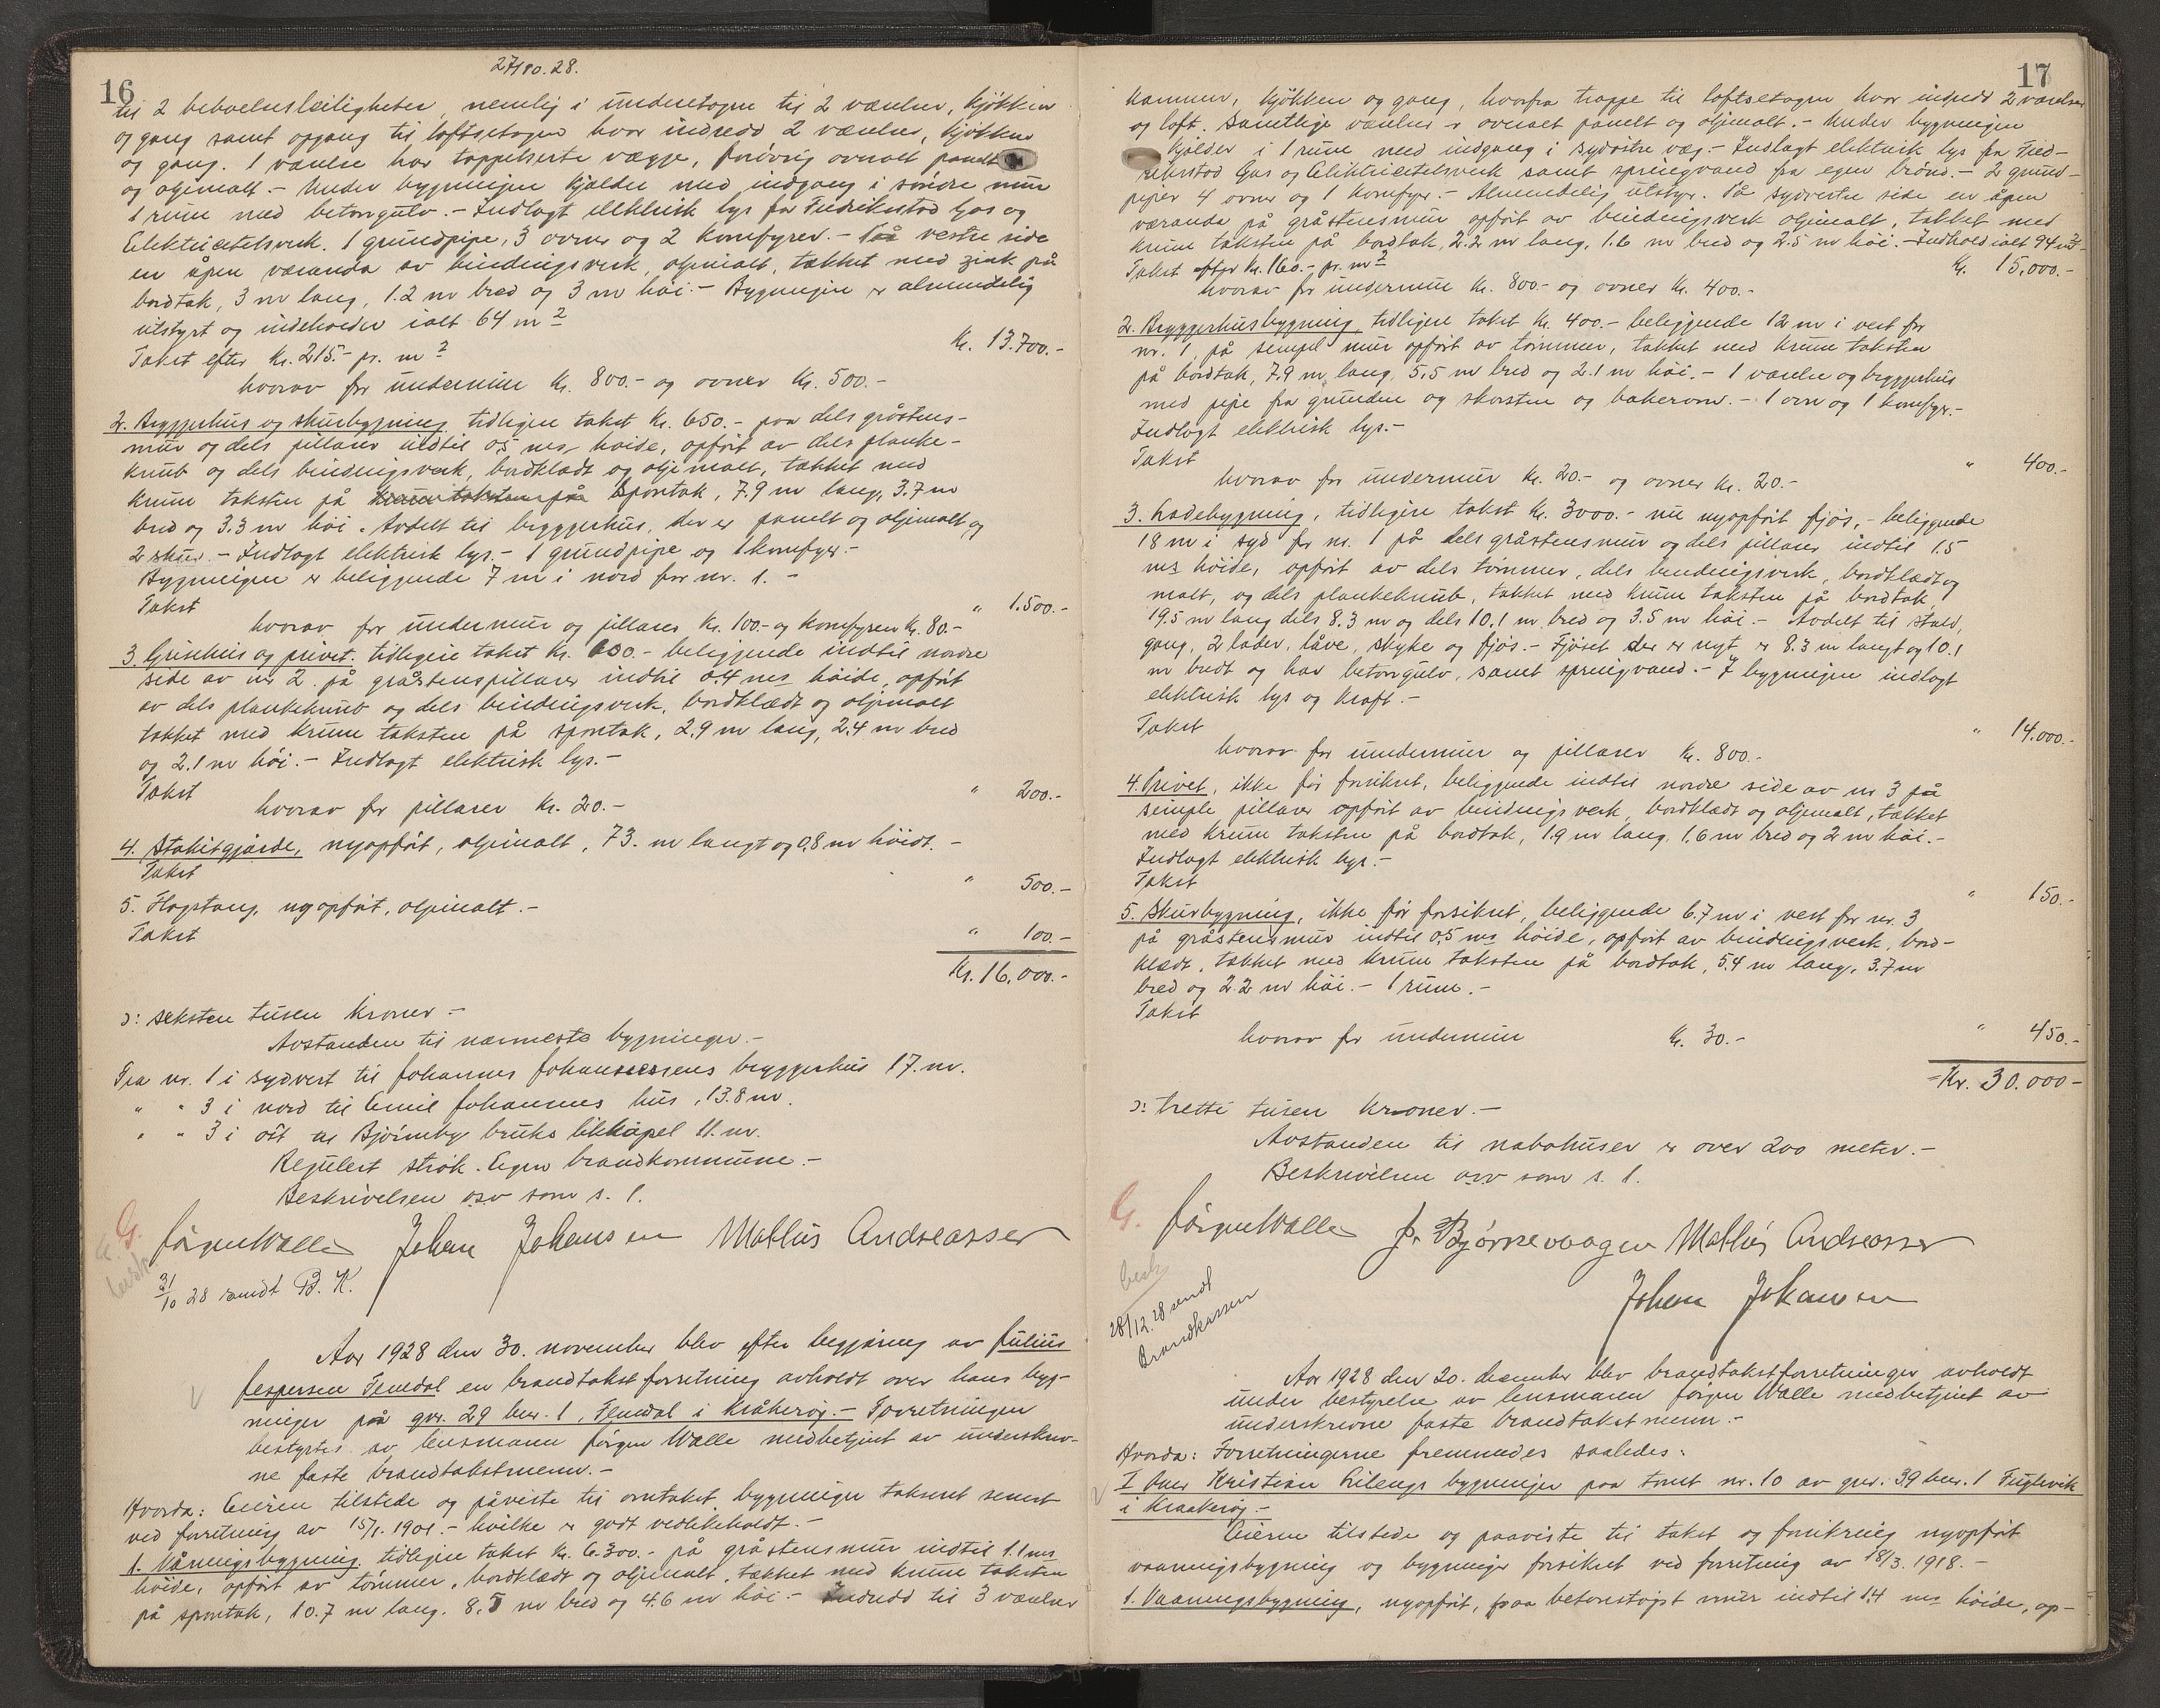 27/10.28.
16
til 2 beboelsesleiligheter, nemlig i underetagen til 2 værelser, kjøkken
og gang samt opgang til loftsetagen hvor indredd 2 værelser, kjøkken
og gang. 1 værelse har tappetserte vægge, forøvrig overalt panelt
og oljemalt. - Under bygningen kjelder med indgang i søndre mur
1 rum med betongulv. - Indlagt elektrisk lys fra Fredrikstad Gas og
Elektricitetsverk. 1 grundpipe, 3 ovner og 2 komfyrer. - Paa vestre side
en åpen veranda av bindingsverk, oljemalt, tækket med zink på
bordtak, 3 m lang, 1.2 m bred og 3 m høi. - Bygningen er almindelig
utstyrt og indeholder ialt 64 m²
Takst efter kr. 215.- pr. m² Kr. 13.700.-
hvorav for undermur kr. 800.- og ovner kr. 500.-
2. Bryggerhus og skurbygning, tidligere takst kr. 650.- paa dels gråstens-
mur og dels pillarer indtil 0,5 ms høide, opført av dels planke-
knub og dels bindingsverk, bordklædt og oljemalt, tækket med
krum taksten på krum taksten på spontak, 7.9 m lang, 3.7 m
bred og 3.3 m høi. Avdelt til bryggerhus, der er panelt og oljemalt og
2 skur. - Indlagt elektrisk lys. - 1 grundpipe og 1 komfyr. -
Bygningen er beliggende 7 m i nord for nr. 1. -
Takst " 1.500.-
hvorav for undermur og pillarer kr. 100.- og komfyren kr. 80.-
3. Grisehus og privet. tidligere takst kr. 600.- beliggende indtil nordre
side av nr 2. på gråstenspillarer indtil 0.4 ms høide, opført
av dels plankeknub og dels bindingsverk, bordklædt og oljemalt
tækket med krum taksten på spontak, 2.9 m lang, 2.4 m bred
og 2.1 m høi. - Indlagt elektrisk lys. -
Takst " 200.-
hvorav for pillarer kr. 20.-
4. Stakitgjærde, nyopført, oljemalt, 73. m langt og 0,8 m høidt. -
Takst " 500.-
5. Flagstang, nyopført, oljemalt. -
Takst " 100.-
Kr. 16,000.-
ɔ: seksten tusen kroner -
Avstanden til nærmeste bygninger. -
Fra nr. 1 i sydvest til Johannes Johannessens bryggerhus 17. m.
" " 3 i nord til Emil Johannes hus, 13.8 m.
" " 3 i øst til Bjørneby bruks likkapel 11. m.
Regulert strøk. Egen brandkommune. -
Beskrivelsen osv som s. 1.
G. Jørgen Walle Johan Johansen Mathis Andreassen
31/10 28 sendt B. K.
Aar 1928 den 30. november blev efter begjæring av Julius
Jespersen Femdal en brandtakstforretning avholdt over hans byg-
ninger på gnr. 29 bnr. 1, Femdal i Kråkerøy. - Forretningen
bestyrtes av lensmann Jørgen Walle medbetjent av underskrev-
ne faste brandtakstmenn. -
Hvorda: Eieren tilstede og påviste til omtakst bygninger taksert senest
ved forretning av 15/1. 1901. - hvilke er godt vedlikeholdt. -
1. Våningsbygning, tidligere takst kr. 6.300.- på gråstensmur indtil 1.1 ms
høide, opført av tømmer, bordklædt og oljemalt, tækket med krum taksten
på spontak, 10.7 m lang. 8.5 m bred og 4.6 m høi - Indredd til 3 værelser
17
kammer, kjøkken og gang, hvorfra trappe til loftsetagen hvor indredd 2 værelser
og loft. Samtlige værelser er overalt panelt og oljemalt. - Under bygningen
kjelder i 1 rum med indgang i sydøstre væg. - Indlagt elektrisk lys fra Fred-
rikstad Gas og Elektricitetsverk samt springvand fra egen brønd. - 2 grund-
piper 4 ovner og 1 komfyr. - Almindelig utstyr. På sydvestre side en åpen
veranda på gråstensmur opført av bindingsverk oljemalt, tækket med
krum taksten på bordtak, 2.2 m lang, 1.6 m bred og 2.5 m høi. - Indhold ialt 94 m²
Takst efter kr. 160.- pr. m² Kr. 15,000.-
hvorav for undermur kr. 800.- og ovner kr. 400.-
2. Bryggerhusbygning, tidligere takst kr. 400.- beliggende 12 m i vest for
nr. 1, på simpel mur opført av tømmer, tækket med krum taksten
på bordtak, 7.9 m lang, 5,5 m bred og 2.1 m høi. - 1 værelse og bryggerhus
med pipe fra grunden og skorsten og bakerovn. - 1 ovn og 1 komfyr. -
Indlagt elektrisk lys. -
Takst " 400.-
hvorav for undermur kr. 20.- og ovner kr. 20.-
3. Ladebygning, tidligere takst kr. 3000.- nu nyopført fjøs, - beliggende
18 m i syd for nr. 1 på dels gråstensmur og dels pillarer indtil 1.5
ms høide, opført av dels tømmer, dels bindingsverk, bordklædt og
malt, og dels plankeknub, tækket med krum taksten på bordtak,
19.5 m lang dels 8.3 m og dels 10.1 m bred og 3.5 m høi. - Avdelt til stald,
gang, 2 lader, låve, skyke og fjøs. - Fjøset der er nyt er 8.3 m langt og 10.1
m bredt og har betongulv, samt springvand. - I bygningen indlagt
elektrisk lys og kraft. -
Takst " 14.000.-
hvorav for undermur og pillarer kr. 800.-
4. Privet, ikke før forsikret, beliggende indtil nordre side av nr 3 på
simple pillarer opført av bindingsverk, bordklædt og oljemalt, tækket
med krum taksten på bordtak, 1.9 m lang, 1.6 m bred og 2 m høi. -
Indlagt elektrisk lys. -
Takst " 150.-
5. Skurbygning, ikke før forsikret, beliggende 6.7 m i vest for nr. 3
på gråstensmur indtil 0,5 ms høide, opført av bindingsverk, bord-
klædt, tækket med krum taksten på bordtak, 5.4 m lang, 3.7 m
bred og 2.2 m høi. - 1 rum. -
Takst
hvorav for undermur kr. 30.- " 450.-
Kr. 30.000-
ɔ: tretti tusen kroner. -
Avstanden til nabohuser er over 200 meter. -
Beskrivelsen osv som s. 1.
G. Jørgen Walle Jr. Bjørnevaagen Mathis Andreassen
Johan Johansen
28/12.28 sendt
Brandkassen
Aar 1928 den 20. desember blev brandtakstforretninger avholdt
under bestyrelse av lensmannen Jørgen Walle medbetjent av
underskrevne faste brandtakstmenn. -
Hvorda: Forretningerne fremmedes saaledes:
I Over Kristian Lilengs bygninger paa tomt nr. 10 av gnr. 39 bnr. 1 Fuglevik
i Kraakerøy. -
Eieren tilstede og paaviste til takst og forsikring nyopført
vaaningsbygning og bygninger forsikret ved forretning av 18/3. 1918. -
1. Vaaningsbygning, nyopført, paa betonstøpt mur indtil 1.4 ms høide, op-